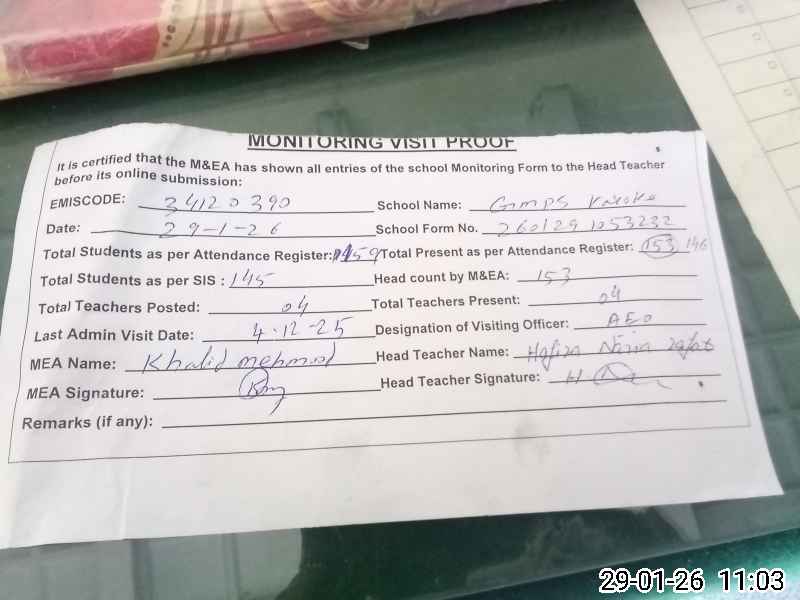 MONITORING VISIT PROOF
It is certified that the M&EA has shown all entries of the school Monitoring Form to the Head Teacher
before its online submission:
EMISCODE: 34120390 School Name: GMPS
Date: 29-1-26 School Form No. 260129 1053232
Total Students as per Attendance Register: 159 Total Present as per Attendance Register: 153 146
Total Students as per SIS : 145 Head count by M&EA: 153
Total Teachers Posted: 04 Total Teachers Present: 04
Last Admin Visit Date: 4-12-25 Designation of Visiting Officer: AEO
MEA Name: Khalid mehmood Head Teacher Name: Hafiza
MEA Signature: Head Teacher Signature:
Remarks (if any):
29-01-26 11:03